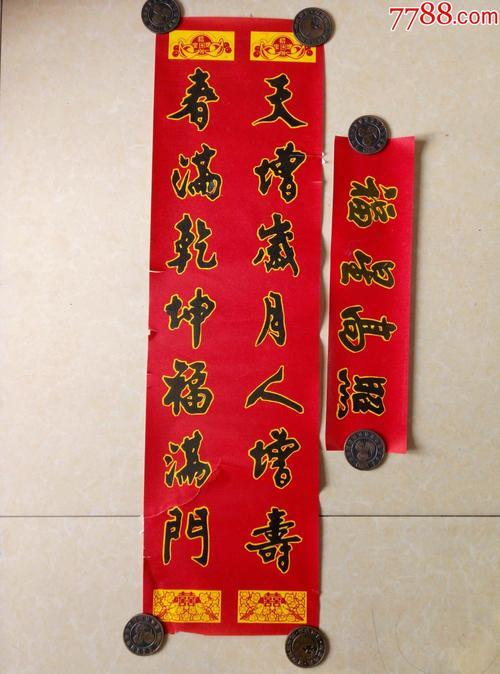 7788.com
天增歲月人增壽
春滿乾坤福滿門
福星高照